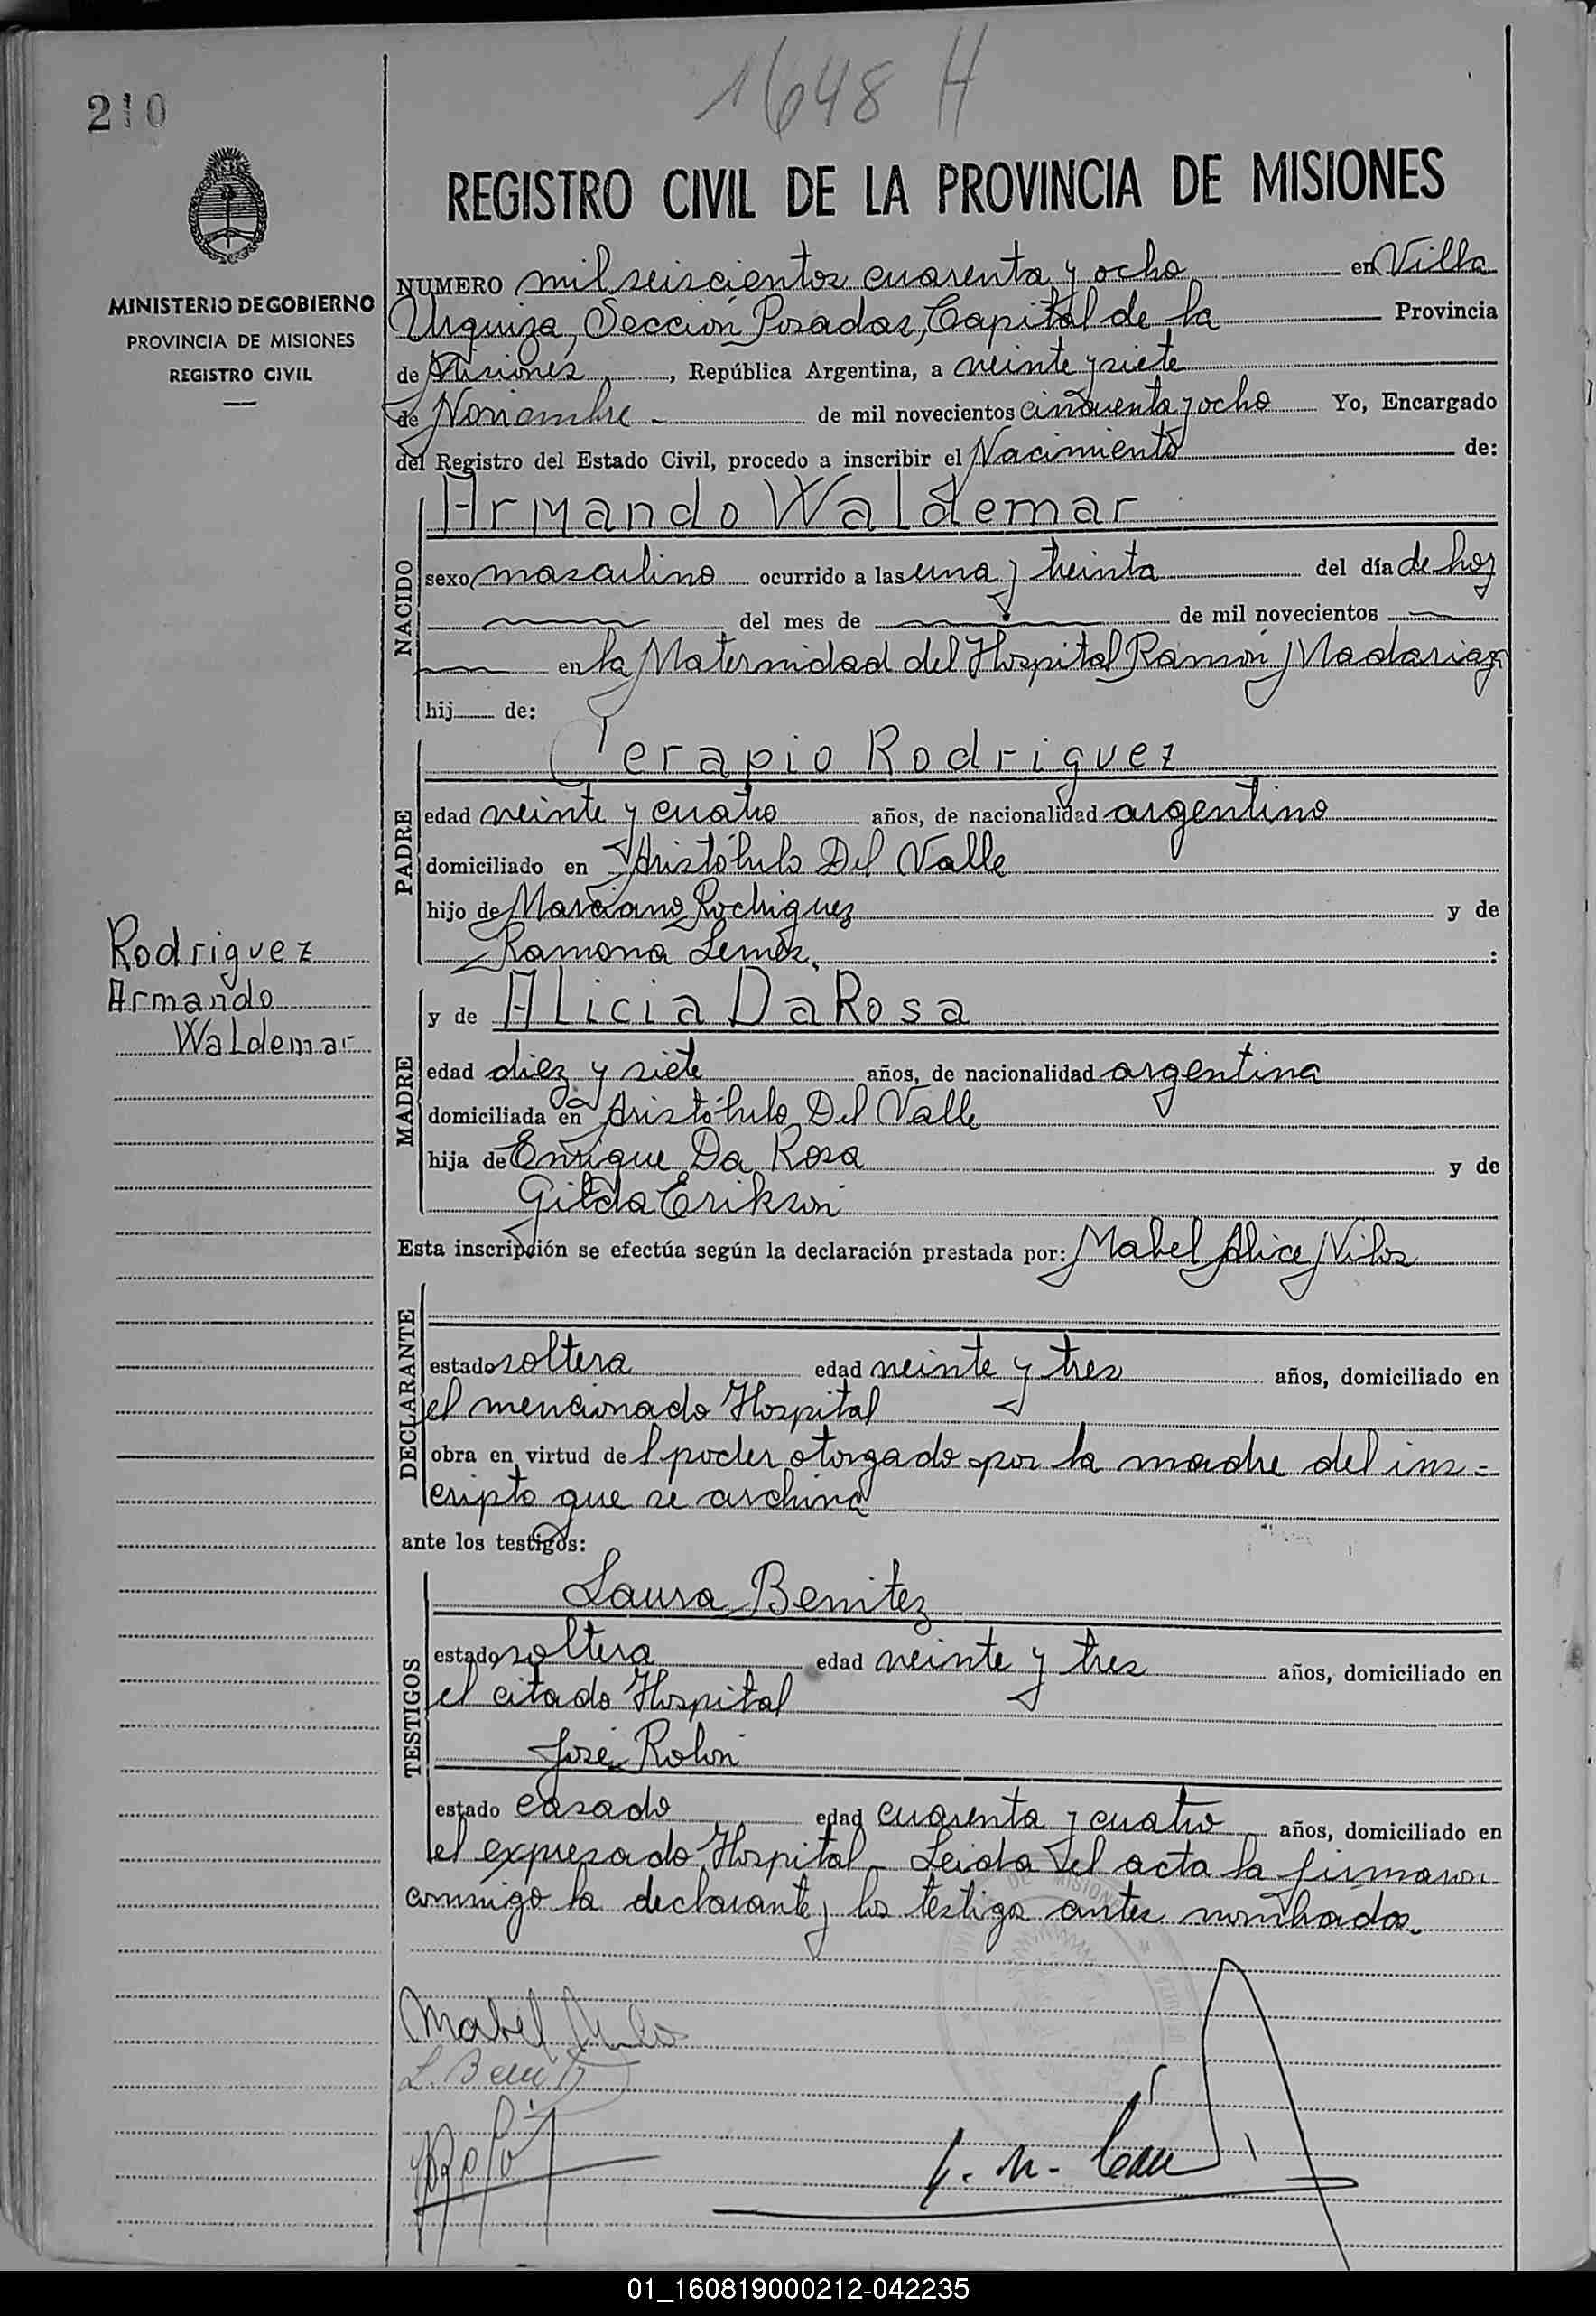 1648 H
210
REGISTRO CIVIL DE LA PROVINCIA DE MISIONES
MINISTERIO DE GOBIERNO
PROVINCIA DE MISIONES
REGISTRO CIVIL
NUMERO mil seiscientos cuarenta y ocho en Villa
Urquiza, Sección Posadas, Capital de la Provincia
de Misiones, República Argentina, a veinte y siete
de Noviembre de mil novecientos cincuenta y ocho Yo, Encargado
del Registro del Estado Civil, procedo a inscribir el Nacimiento de:
NACIDO
Armando Waldemar
sexo masculino ocurrido a las una y treinta del día de hoy
del mes de de mil novecientos
en la Maternidad del Hospital Ramón Madariaga
hij de:
PADRE
Cerapio Rodriguez
edad veinte y cuatro años, de nacionalidad argentino
domiciliado en Aristóbulo Del Valle
hijo de Marciano Rodriguez y de
Ramona Lemes. :
Rodriguez
Armando
Waldemar
MADRE
y de Alicia Da Rosa
edad diez y siete años, de nacionalidad argentina
domiciliada en Aristóbulo Del Valle
hija de Enrique Da Rosa y de
Gilda Erikson
Esta inscripción se efectúa según la declaración prestada por: Mabel Alice
DECLARANTE
estado soltera edad veinte y tres años, domiciliado en
el mencionado Hospital
obra en virtud de l poder otorgado por la madre del ins=
cripto que se archiva
ante los testigos:
TESTIGOS
Laura Benitez
estado soltera edad veinte y tres años, domiciliado en
el citado Hospital
José Rolon
estado casado edad cuarenta y cuatro años, domiciliado en
el expresado Hospital - Leida el acta la firmaron
conmigo la declarante y los testigos antes nombrados.
Mabel
L. Benitz
Rolon
01_160819000212-042235